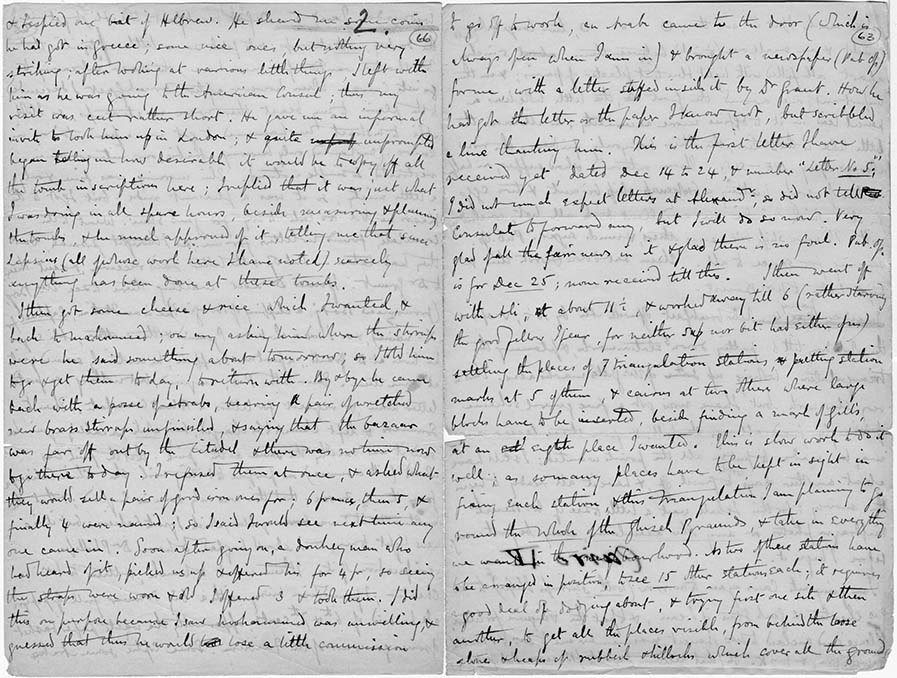 2.
66
& replied one bit of Hebrew. He shewed me some coins
he had got in Greece; some nice ones, but nothing very
striking; after looking at various little things I left with
him as he was going to the American Consul; thus my
visit was cut rather short. He gave me an informal
invite to look him up in London; & quite unprompted
began telling me how desirable it would be to copy off all
the tomb inscriptions here; I replied that it was just what
I was doing in all spare hours, beside measuring & planning
the tombs, & he much approved of it, telling me that since
Lepsius (all whose work here I have noted) scarcely
anything has been done at these tombs.
I then got some cheese & rice which I wanted, &
back to Mahommed; on my asking him where the stirrups
were he said something about tomorrow; so I told him
to go & get them to day, to return with. By & bye he came
back with a posse of arabs, bearing a pair of wretched
new brass stirrups unfinished, & saying that the bazaar
was far off out by the Citadel & there was no time now
to go there to day. I refused them at once, & asked what
they would sell a pair of good worn ones for; 6 francs, then 5, &
finally 4 were named; so I said I would see next time any
one came in. Soon after going on, a donkey man who
had heard of it, picked us up & offered his for 4 fr, so seeing
the straps were worn & old I offered 3 & took them. I did
this on purpose because I saw Mohammed was unwilling, &
guessed that thus he would lose a little commission
63
to go off to work, an arab came to the door (which is
always open when I am in) & brought a newspaper (Pub. Op.)
for me with a letter stuffed inside it by Dr Grant. How he
had got the letter or the paper I know not, but scribbled
a line thanking him. This is the first letter I have
received yet dated Dec 14 to 24, & number "Letter No 5;"
I did not much expect letters at Alexandr, so did not tell
Consulate to forward any, but I will do so now. Very
glad of all the fair news in it & glad there is no foul. Pub. Op.
is for Dec 25; none received till this. I then went off
with Ali, at about 11½, & worked away till 6 (rather starving
the good fellow I fear, for neither sup nor bit had either of us)
settling the places of 7 triangulation stations, & putting station
marks at 5 of them, & cairns at two others where large
blocks have to be inserted, beside finding a mark of Gill's,
at an eighth place I wanted. This is slow work to do it
well; as so many places have to be kept in sight in
fixing each station, & this triangulation I am planning to go
round the whole of the Gizeh Pyramids, & take in everything
we want in the neighbourhood. As two of these stations have
to be arranged in position to see 15 other stations each; it requires
a good deal of dodging about, & trying first one site & then
another, to get all the places visible, from behind the loose
stone & heaps of rubbish & hillocks which cover all the ground